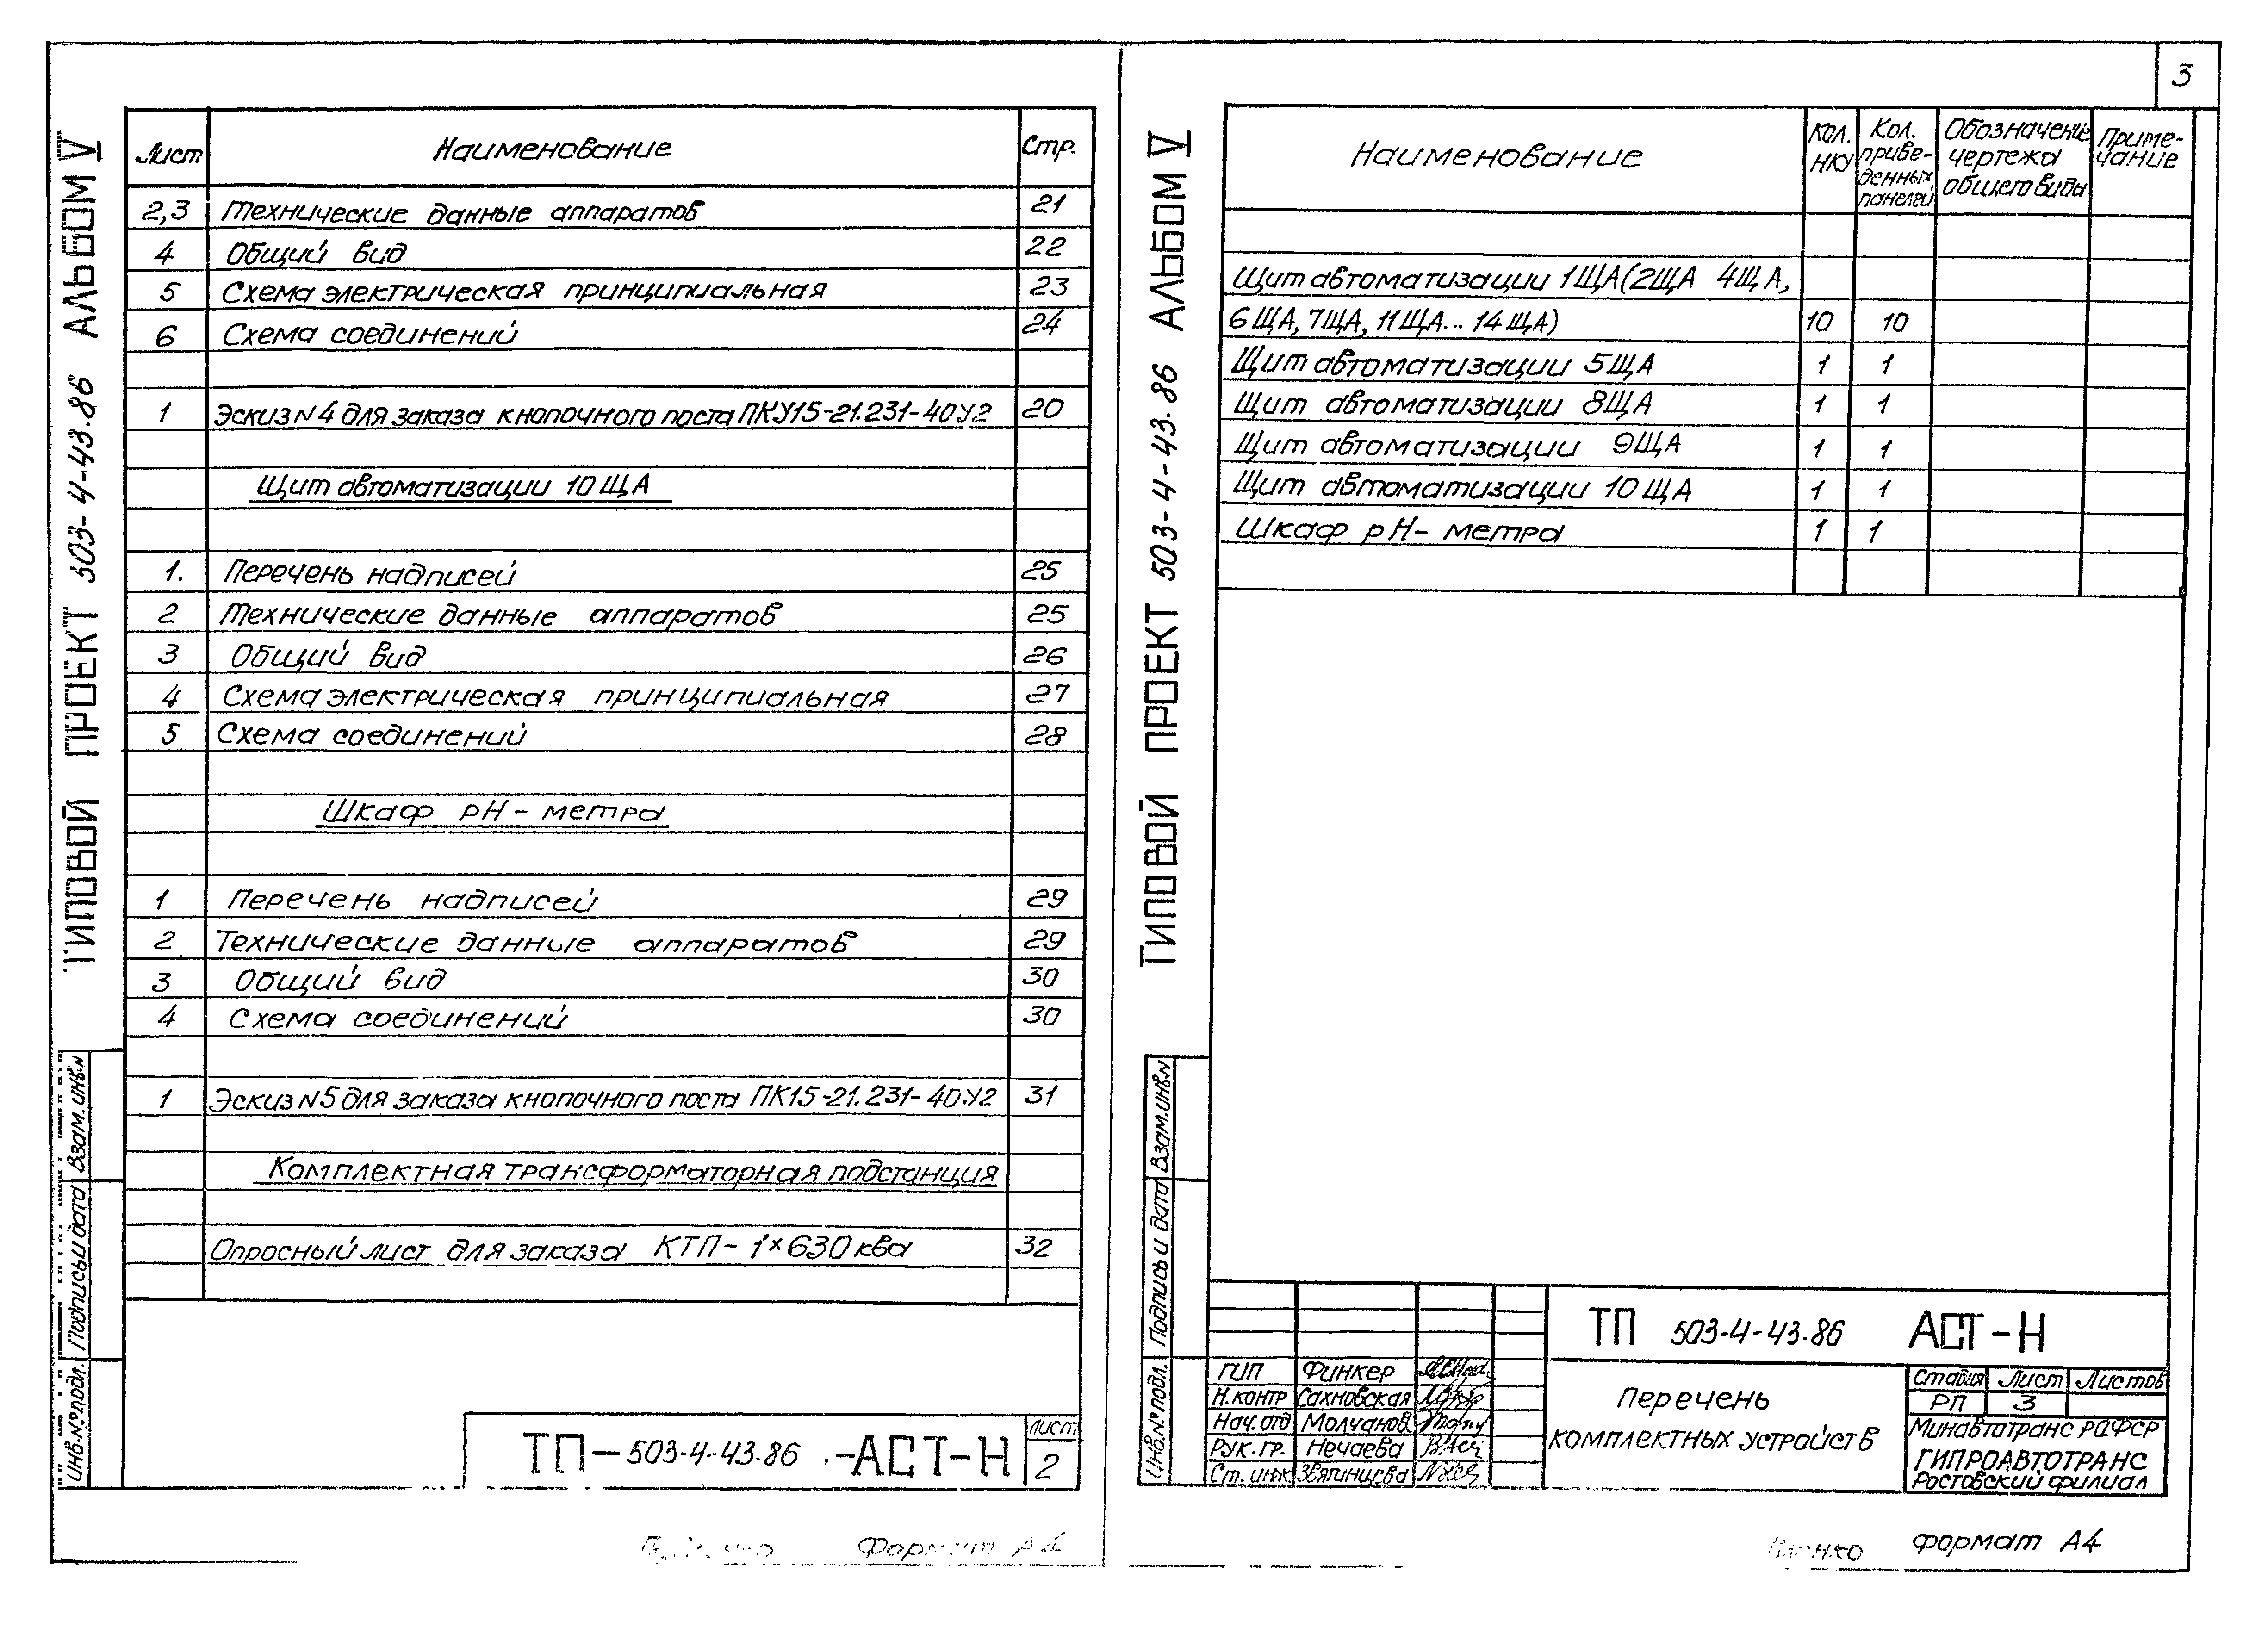 3
ТИПОВОЙ ПРОЕКТ 503-4-43.86 АЛЬБОМ V
Лист Наименование Стр.
2,3 Технические данные аппаратов 21
4 Общий вид 22
5 Схема электрическая принципиальная 23
6 Схема соединений 24
1 Эскиз N4 для заказа кнопочного поста ПКУ15-21.231-40У2 20
Щит автоматизации 10ЩА
1. Перечень надписей 25
2 Технические данные аппаратов 25
3 Общий вид 26
4 Схема электрическая принципиальная 27
5 Схема соединений 28
Шкаф рН-метра
1 Перечень надписей 29
2 Технические данные аппаратов 29
3 Общий вид 30
4 Схема соединений 30
1 Эскиз N5 для заказа кнопочного поста ПК15-21.231-40У2 31
Комплектная трансформаторная подстанция
Опросный лист для заказа КТП-1х630 ква 32
Инв.№подл. Подпись и дата Взам.инв.N
ТП-503-4-43.86 -АСТ-Н
Лист
2
Формат А4
ТИПОВОЙ ПРОЕКТ 503-4-43.86 АЛЬБОМ V
Наименование
Кол. НКУ
Кол. приве-
денных
панелей
Обозначение
чертежа
общего вида
Приме-
чание
Щит автоматизации 1ЩА(2ЩА 4ЩА,
6ЩА, 7ЩА, 11ЩА... 14ЩА) 10 10
Щит автоматизации 5ЩА 1 1
Щит автоматизации 8ЩА 1 1
Щит автоматизации 9ЩА 1 1
Щит автоматизации 10ЩА 1 1
Шкаф рН-метра 1 1
Инв.№подл. Подпись и дата Взам.инв.N
ТП 503-4-43.86 АСТ-Н
ГИП Финкер
Н.контр Сахновская
Нач.отд Молчанов
Рук.гр. Нечаева
Ст.инж. Звягинцева
Перечень
комплектных устройств
Стадия Лист Листов
РП 3
Минавтотранс РСФСР
ГИПРОАВТОТРАНС
Ростовский филиал
Формат А4